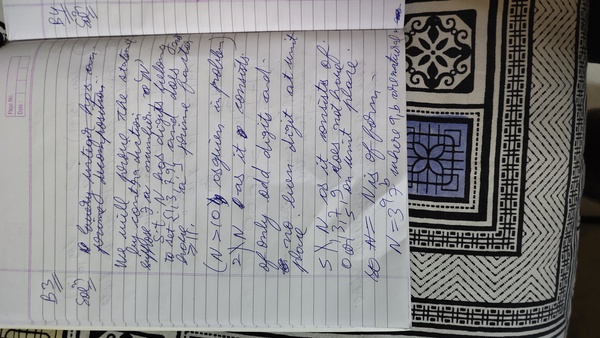 Page No.
Date
B3
B4
Solⁿ
Solⁿ
Every integer has
prime decomposition
We will prove the
by contradiction
suppose ∃ a number, 'N'
s.t. N has digits
to set {1,3,7,9} and does not
have a prime factor
≥ 11.
(N > 10 as given in problem)
2 ∤ N as it consists
of only odd digits and
no even digit at unit
place.
5 ∤ N as it consists of
1, 3, 7, 9 does not have
0 or 5 on unit place.
so N is of form
N = 3^a 7^b where a, b are natural